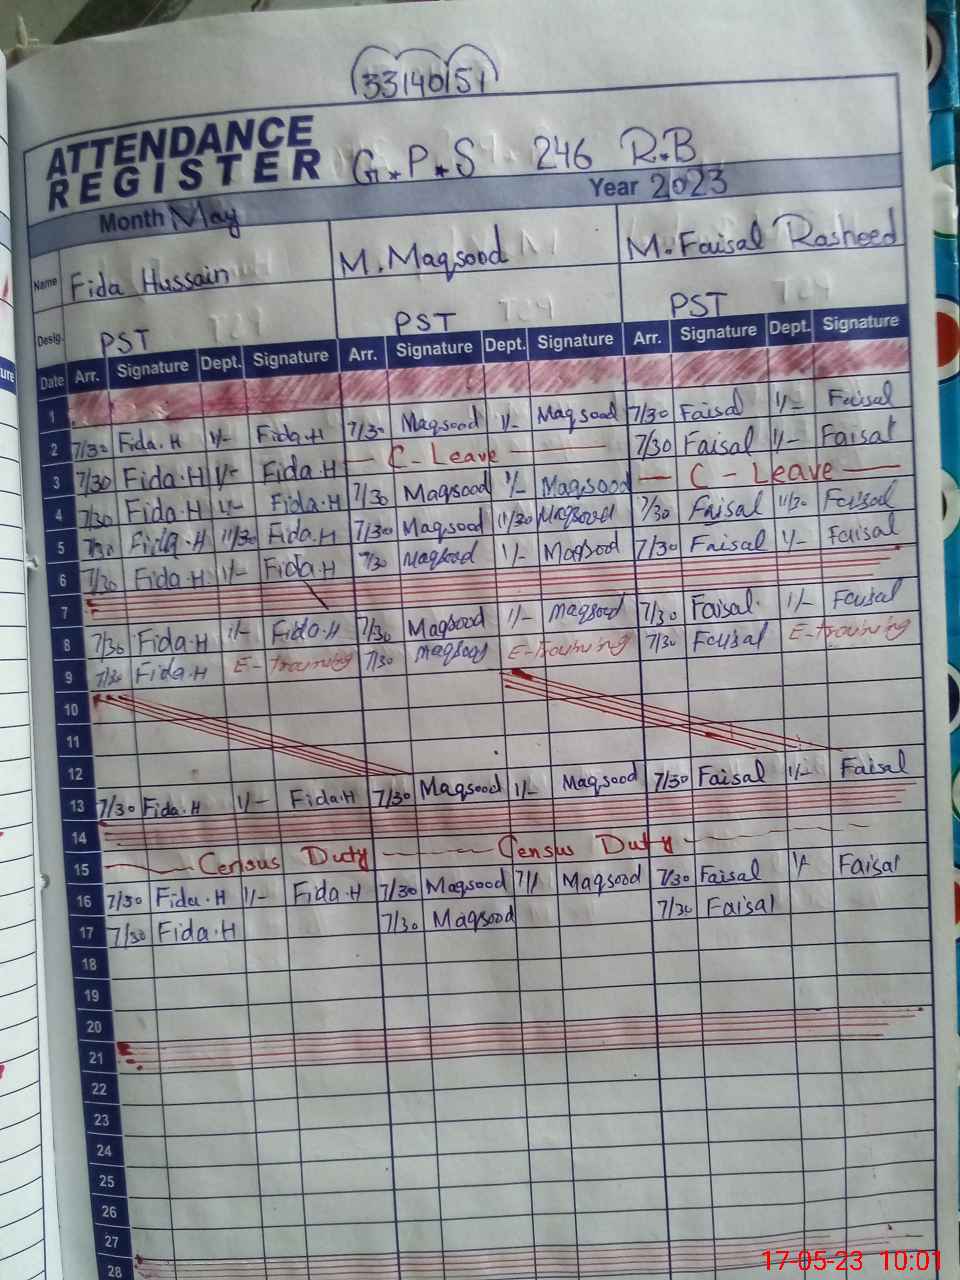 33140151
ATTENDANCE
REGISTER G.P.S 246 R.B
Month May Year 2023
Name Fida Hussain M. Maqsood M. Faisal Rasheed
Desig. PST PST PST
Date Arr. Signature Dept. Signature Arr. Signature Dept. Signature Arr. Signature Dept. Signature
1
2 7/30 Fida.H 1/- Fida.H 7/30 Maqsood 1/- Maqsood 7/30 Faisal 1/- Faisal
3 7/30 Fida.H 1/- Fida.H — C-Leave — 7/30 Faisal 1/- Faisal
4 7/30 Fida.H 1/- Fida.H 7/30 Maqsood 1/- Maqsood — C - Leave —
5 7/30 Fida.H 11/30 Fida.H 7/30 Maqsood 11/30 Maqsood 7/30 Faisal 11/30 Faisal
6 7/30 Fida.H 1/- Fida.H 7/30 Maqsood 1/- Maqsood 7/30 Faisal 1/- Faisal
7
8 7/30 Fida.H 1/- Fida.H 7/30 Maqsood 1/- Maqsood 7/30 Faisal. 1/- Faisal
9 7/30 Fida.H E-training 7/30 Maqsood E-training 7/30 Faisal E-training
10
11
12
13 7/30 Fida.H 1/- Fida.H 7/30 Maqsood 1/- Maqsood 7/30 Faisal 1/- Faisal
14
15 — Census Duty — Census Duty —
16 7/30 Fida.H 1/- Fida.H 7/30 Maqsood Maqsood 7/30 Faisal Faisal
17 7/30 Fida.H 7/30 Maqsood 7/30 Faisal
18
19
20
21
22
23
24
25
26
27
28
17-05-23 10:01